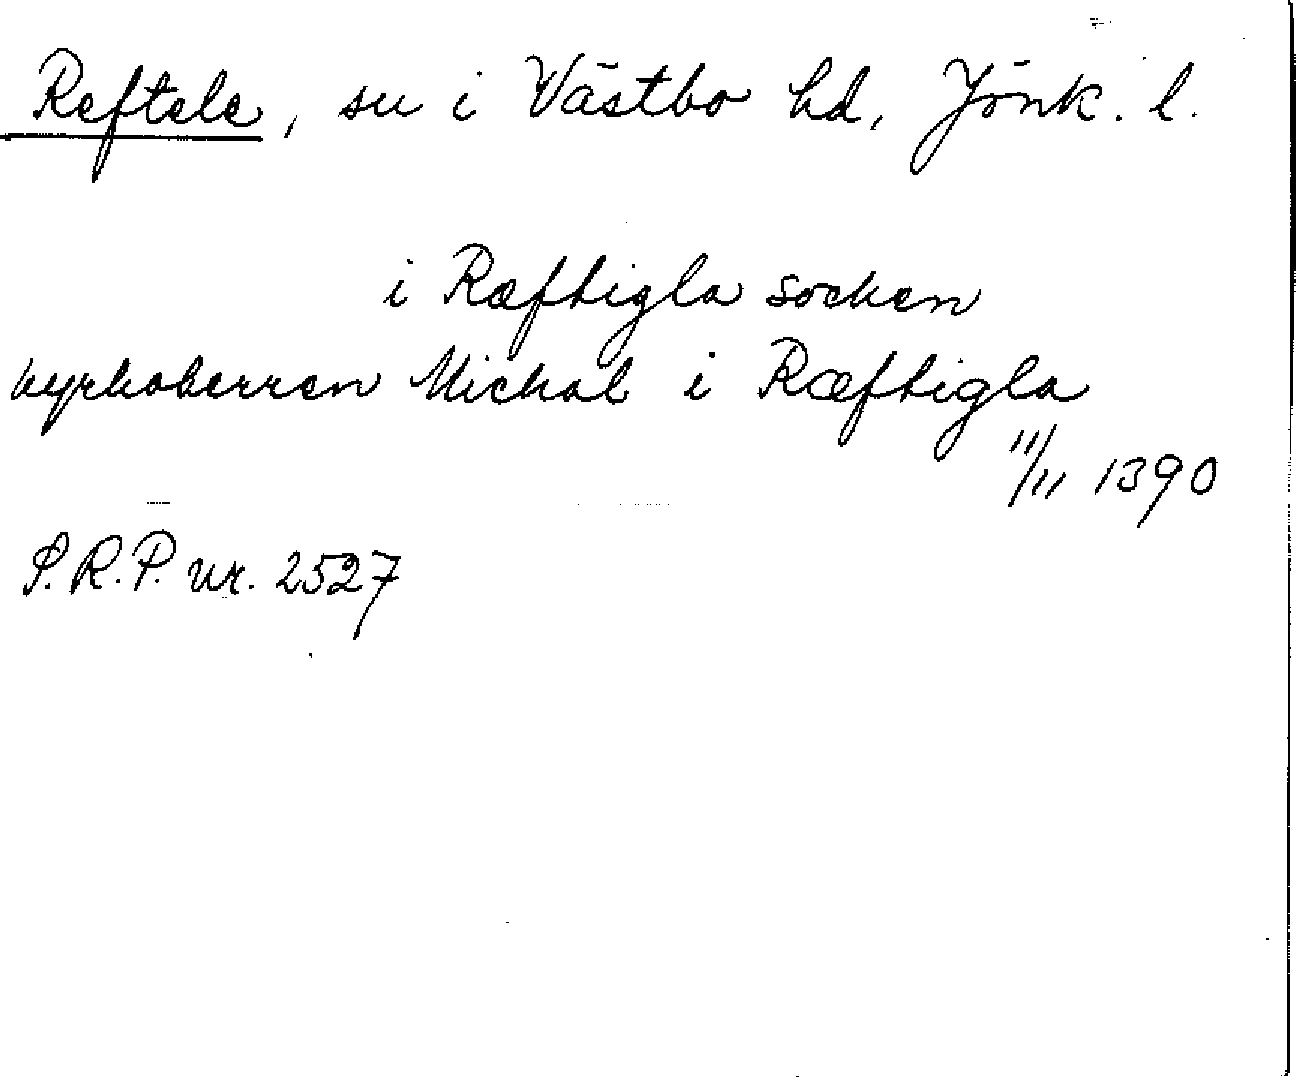 Reftele, sn i Västbo hd, Jönk. l.
i Ræftigla socken
kyrkoherren Mickal i Ræftigla
11/11 1390
S.R.P. nr. 2527